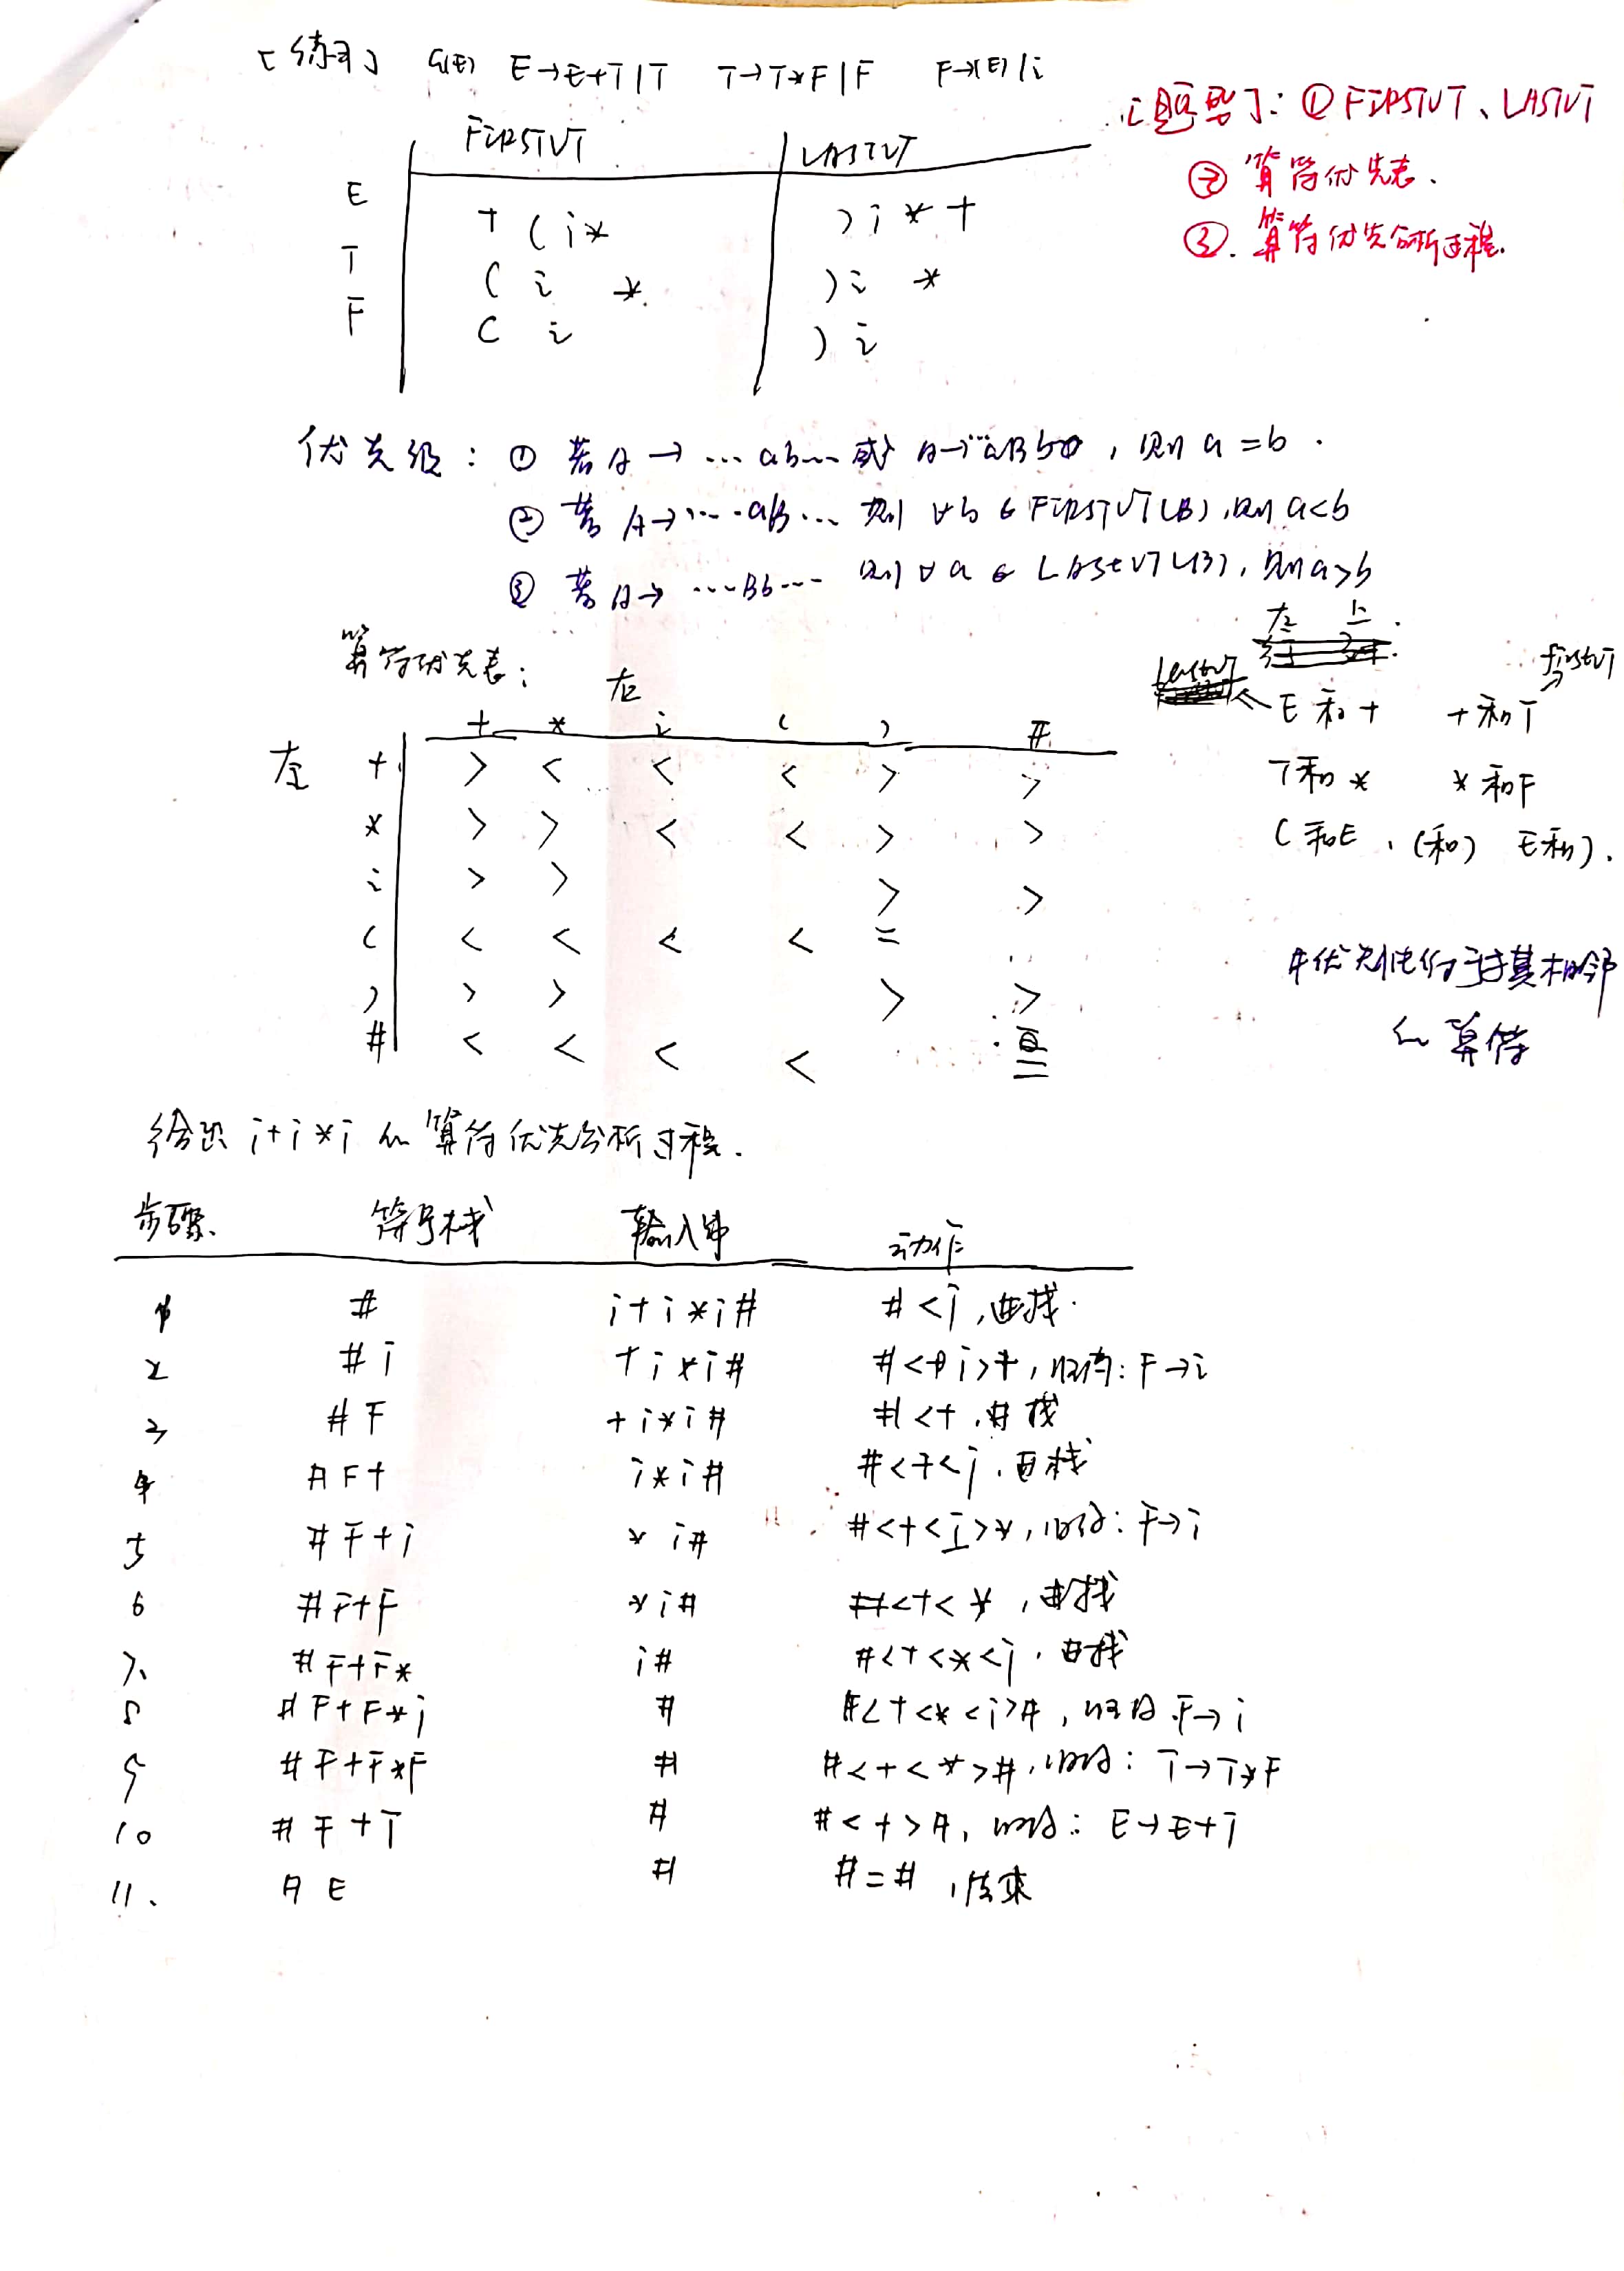 [练习] G(E) E→E+T|T T→T*F|F F→(E)|i
[题型]: ① FIRSTVT、LASTVT
② 算符优先表.
③. 算符优先分析过程.
FIRSTVT LASTVT
E + ( i * ) i * +
T ( i * ) i *
F ( i ) i
优先级: ① 若A → ...ab... 或 A→...aBb , 则 a = b.
② 若 A→...aB... 则 ∀b∈FIRSTVT(B), 则 a<b
③ 若A→ ...Bb... 则 ∀a∈LASTVT(B), 则a>b
算符优先表: 右
左 上.
LASTVT ← E和+ +和T → firstVT
T和* *和F
(和E、(和) E和).
+ * i ( ) #
左 + > < < < > >
* > > < < > >
i > > > >
( < < < < =
) > > > >
# < < < < =
#优先性低于与其相邻
的 算符
给出 i+i*i 的 算符优先分析过程.
步骤. 符号栈 输入串 动作
1 # i+i*i# #<i,进栈.
2 #i +i*i# #<i>+,归约: F→i
3 #F +i*i# #<+,进栈
4 #F+ i*i# #<+<i,进栈
5 #F+i *i# #<+<i>*,归约: F→i
6 #F+F *i# #<+<*,进栈
7. #F+F* i# #<+<*<i,进栈
8 #F+F*i # #<+<*<i>#,归约 F→i
9 #F+F*F # #<+<*>#,归约: T→T*F
10 #F+T # #<+>#,归约: E→E+T
11. #E # #=#,结束